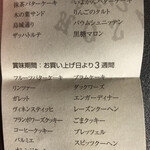 抹茶バターケーキ
いよかんバターケーキ
木の葉サンド
りんごのタルト
高城通り
バウムシュニッテン
ザッハトルテ
黒糖マロン
賞味期間：お買い上げ日より３週間
フルーツバターケーキ
プラムケーキ
リンツァー
ダックワーズ
ガレット
エンガーディナー
ヴィネンスティッヒ
レーズンクーヘン
アリアンボワーズクーヘン
ごまクッキー
コーヒークッキー
プレッツェル
バルミエ
スピッツクーヘン